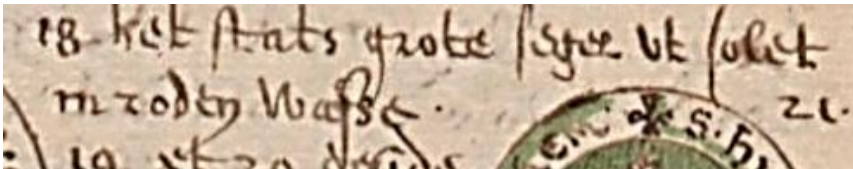 18 het stats grote segel ut solet
in roden wasse. 21.
✠ S. H
19 et 20 de